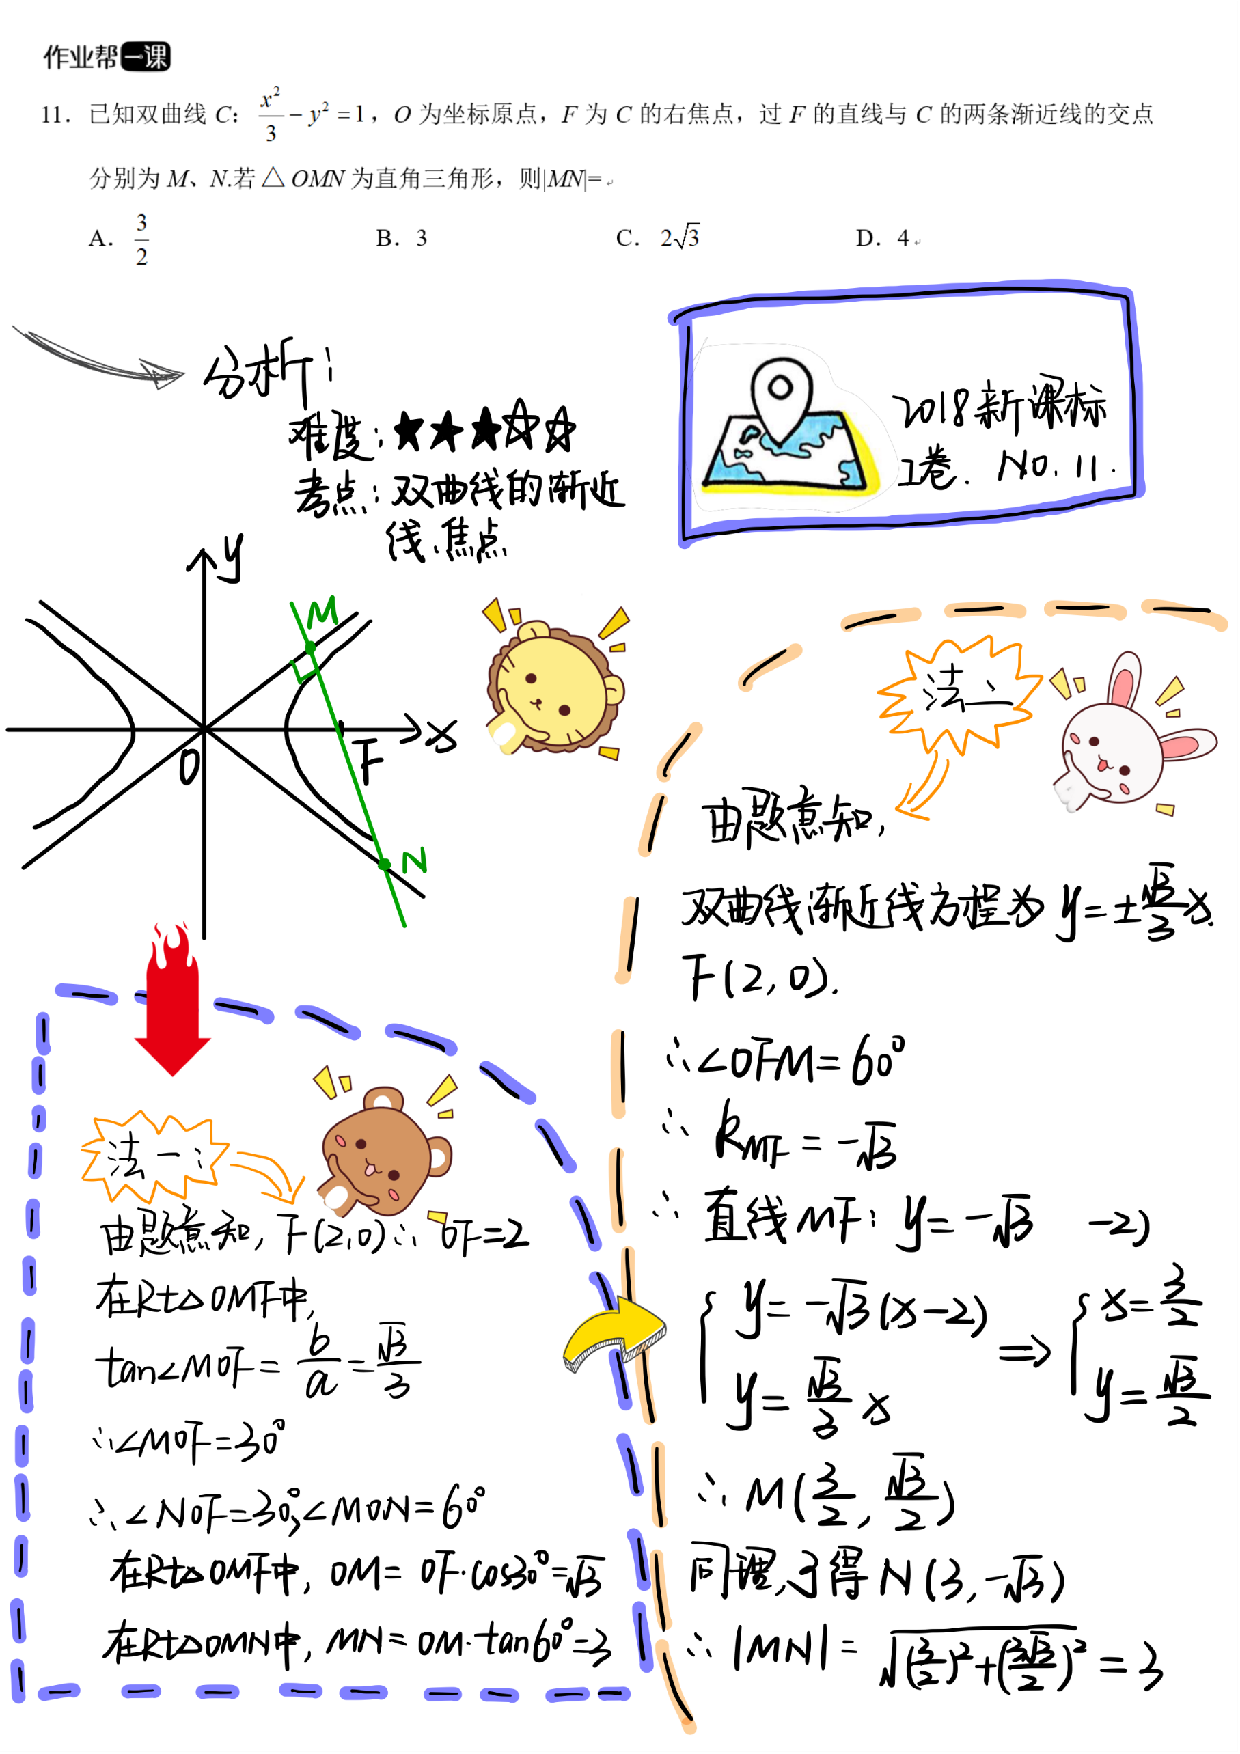 作业帮一课
11. 已知双曲线 C: x²/3 − y² = 1, O 为坐标原点, F 为 C 的右焦点, 过 F 的直线与 C 的两条渐近线的交点
分别为 M、N.若△OMN 为直角三角形, 则|MN|=
A. 3/2 B. 3 C. 2√3 D. 4
分析:
难度: ★★★☆☆
考点: 双曲线的渐近
线、焦点
2018新课标
I卷. NO. 11.
y
M
x
O
F
N
法一:
由题意知, F(2,0)∴OF=2
在Rt△OMF中,
tan∠MOF = b/a = √3/3
∴∠MOF=30°
∴∠NOF=30°,∠MON=60°
在Rt△OMF中, OM= OF·cos30°=√3
在Rt△OMN中, MN= OM·tan60°=3
法二
由题意知,
双曲线渐近线方程为 y=±√3/3 x.
F(2,0).
∴∠OFM=60°
∴ kMF = -√3
∴ 直线MF: y= -√3 -2)
{ y= -√3(x-2) ⇒ { x= 3/2
y= √3/3 x y= √3/2
∴ M(3/2, √3/2)
同理,可得N(3,-√3)
∴ |MN| = √((3/2)²+(3√3/2)²) = 3